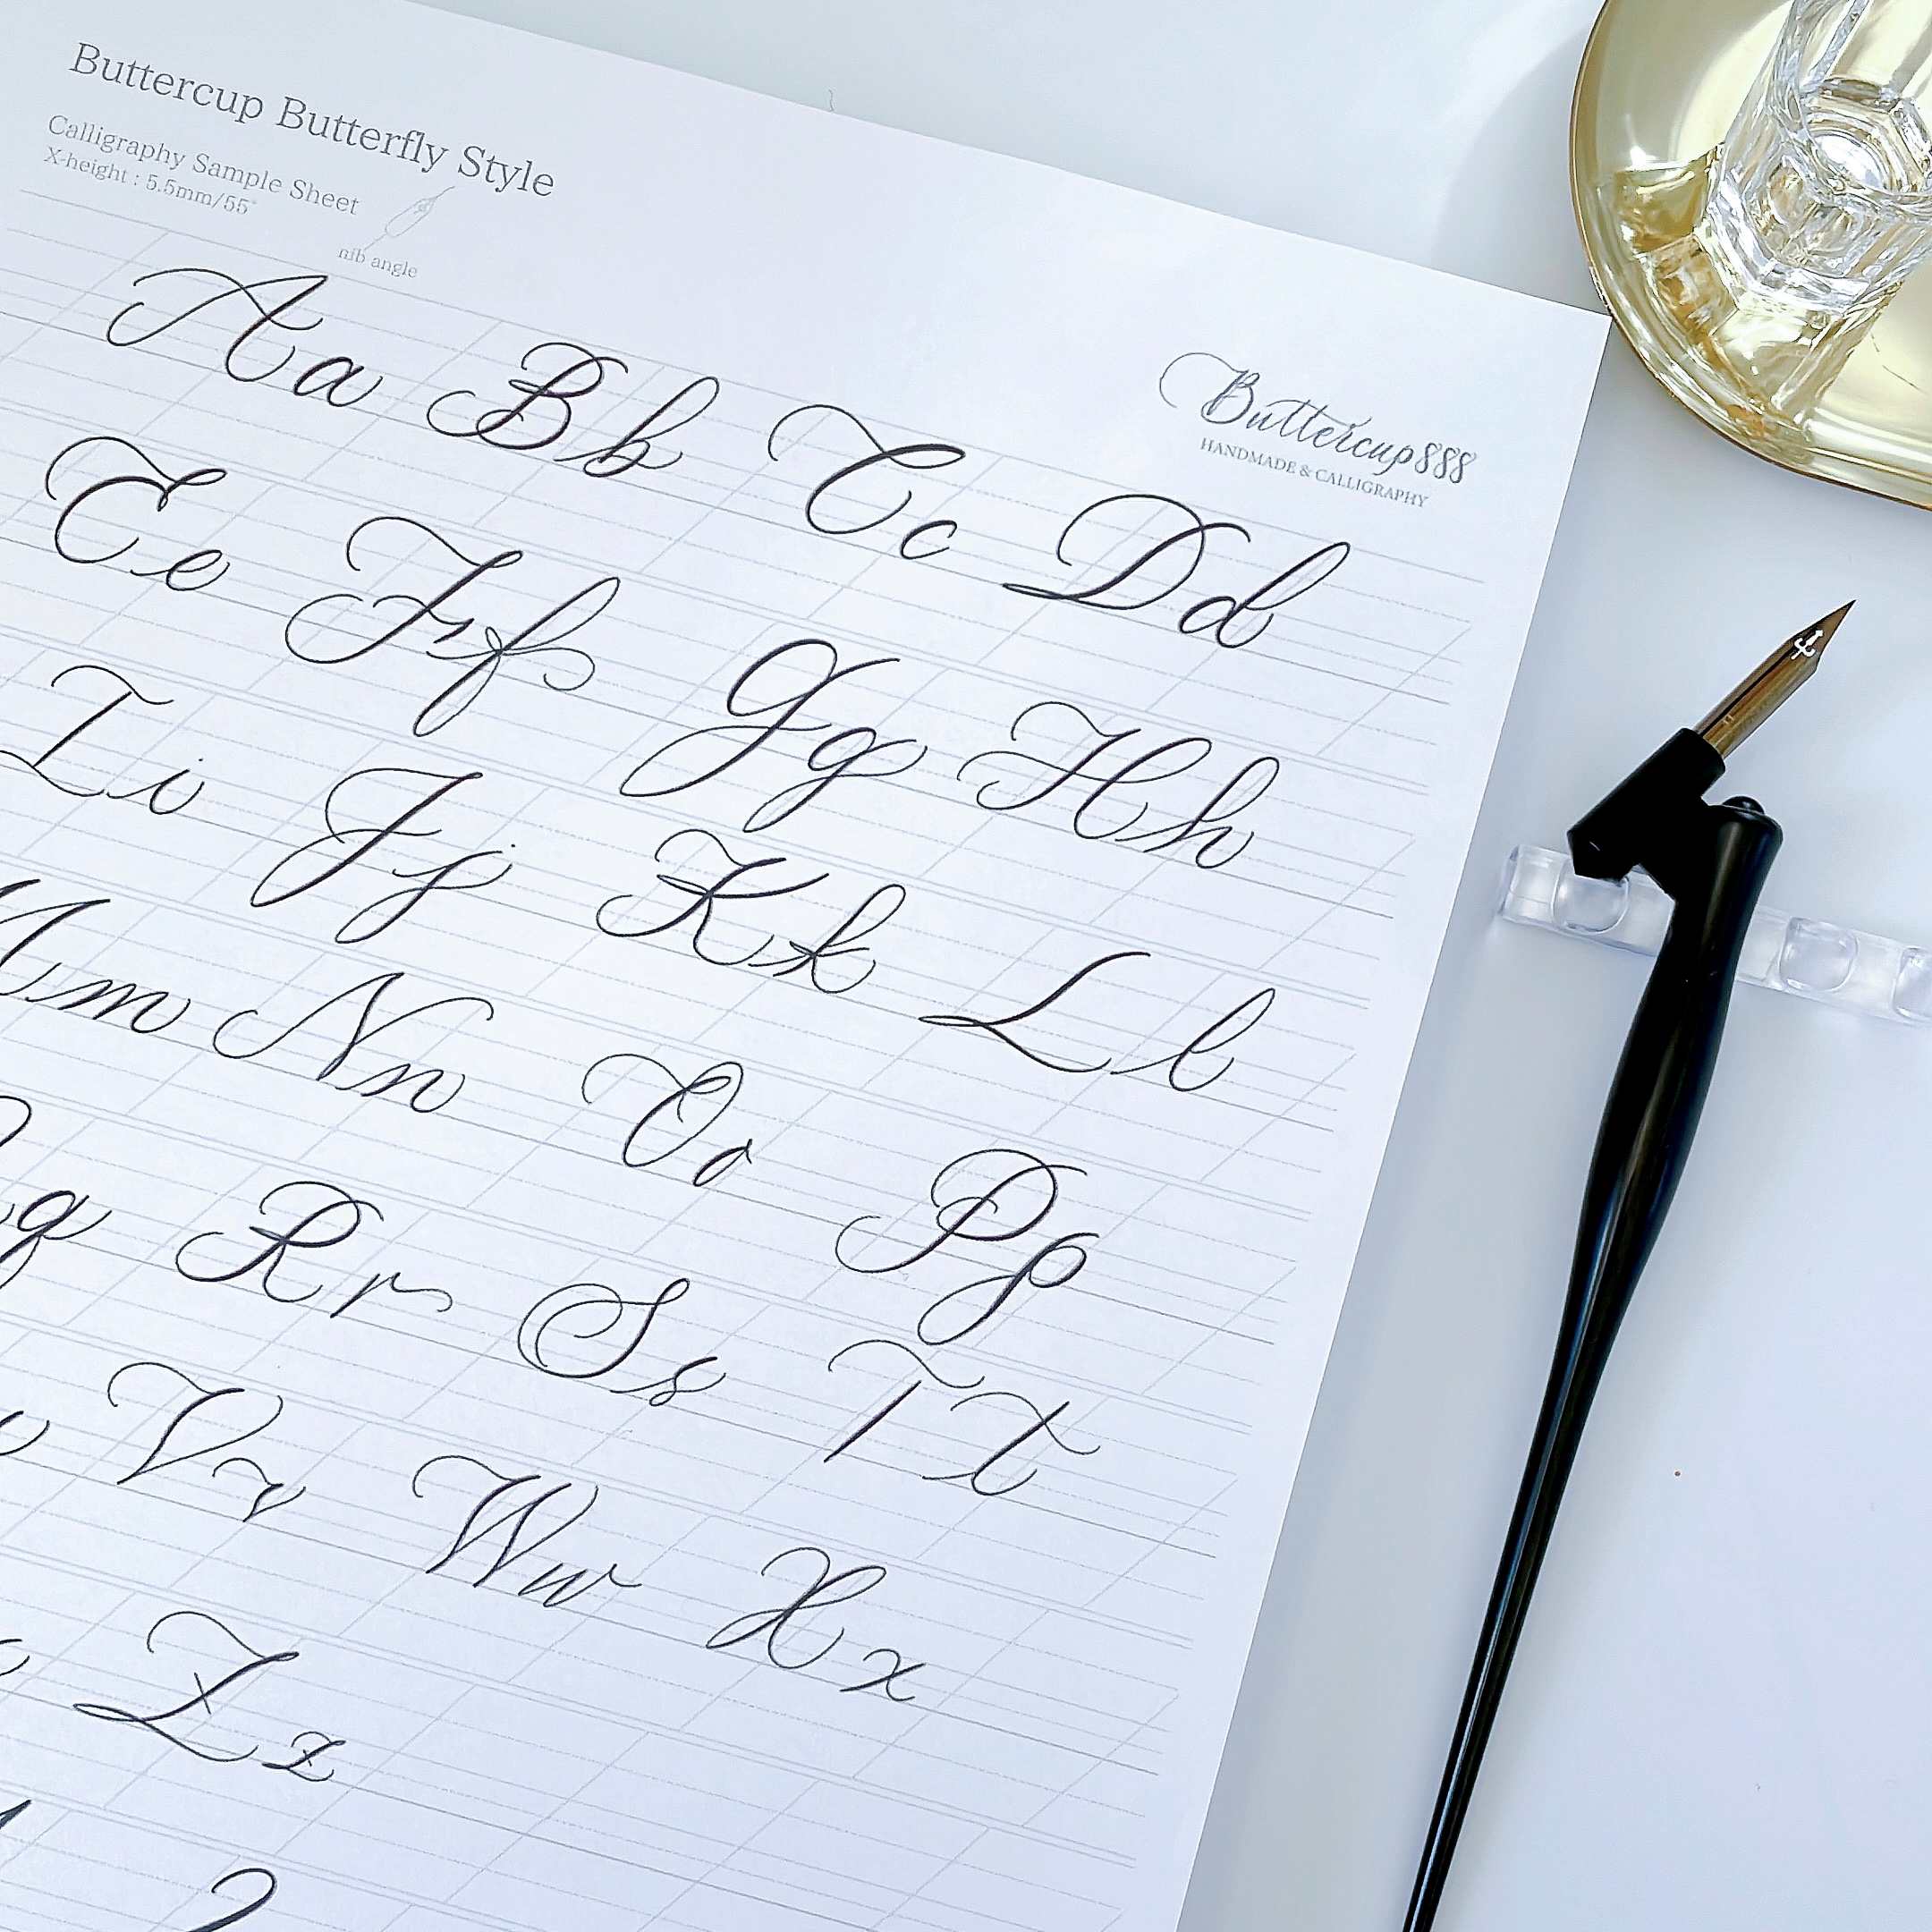 Buttercup Butterfly Style
Calligraphy Sample Sheet
X-height : 5.5mm/55°
nib angle
Buttercup888
HANDMADE & CALLIGRAPHY
Aa Bb Cc Dd
Ee Ff Gg Hh
Ii Jj Kk Ll
Mm Nn Oo Pp
q Rr Ss Tt
Vv Ww Xx
Zz